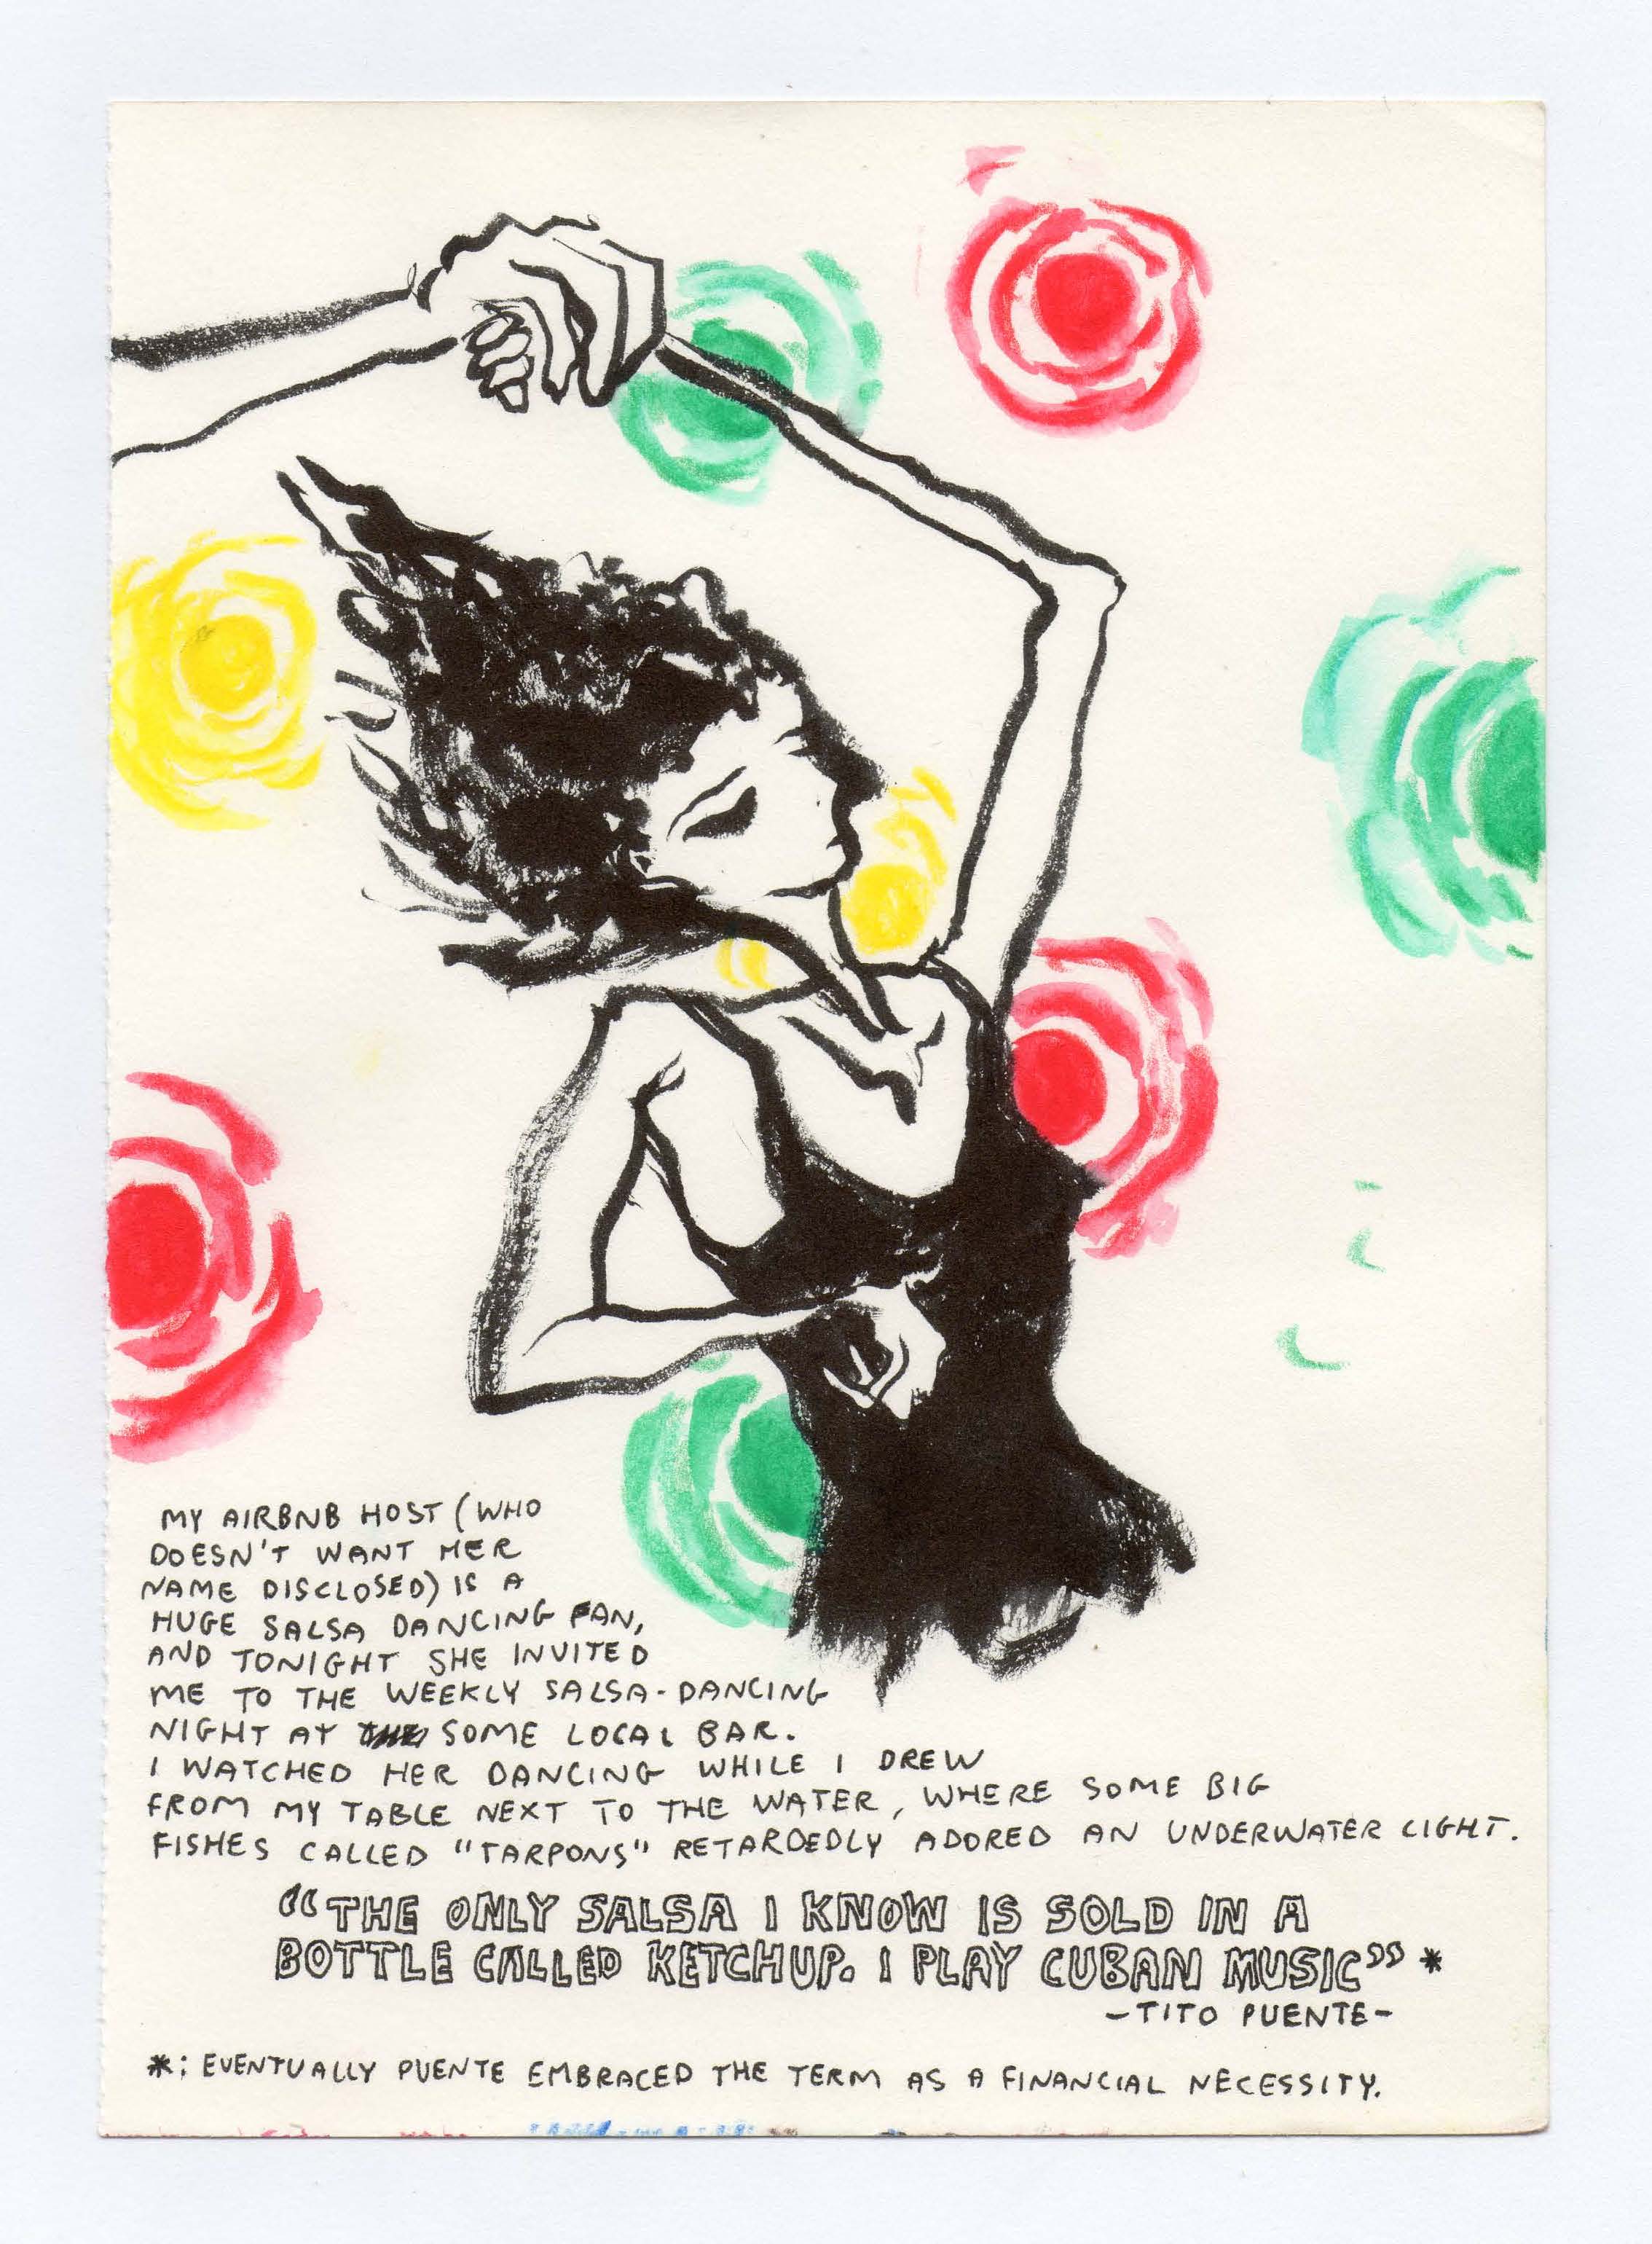 MY AIRBNB HOST (WHO
DOESN'T WANT HER
NAME DISCLOSED) IS A
HUGE SALSA DANCING FAN,
AND TONIGHT SHE INVITED
ME TO THE WEEKLY SALSA-DANCING
NIGHT AT SOME LOCAL BAR.
I WATCHED HER DANCING WHILE I DREW
FROM MY TABLE NEXT TO THE WATER, WHERE SOME BIG
FISHES CALLED "TARPONS" RETARDEDLY ADORED AN UNDERWATER LIGHT.
"THE ONLY SALSA I KNOW IS SOLD IN A
BOTTLE CALLED KETCHUP. I PLAY CUBAN MUSIC" *
-TITO PUENTE-
*: EVENTUALLY PUENTE EMBRACED THE TERM AS A FINANCIAL NECESSITY.